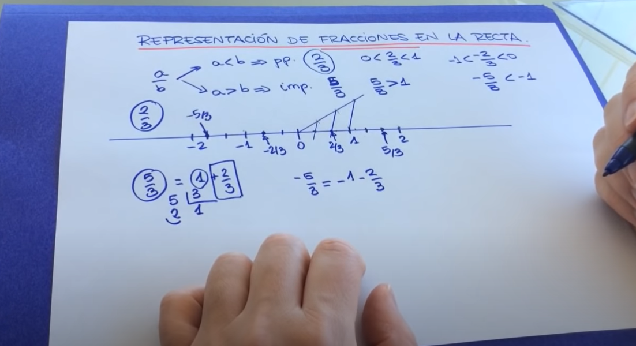 REPRESENTACIÓN DE FRACCIONES EN LA RECTA.
a/b a<b ⇒ pp. 2/3 0<2/3<1 -1<-2/3<0
a>b ⇒ imp. 5/3 5/3>1 -5/3<-1
2/3 -5/3
-2 -1 -2/3 0 2/3 1 5/3 2
5/3 = 1 + 2/3 -5/3 = -1 - 2/3
5 3
2 1